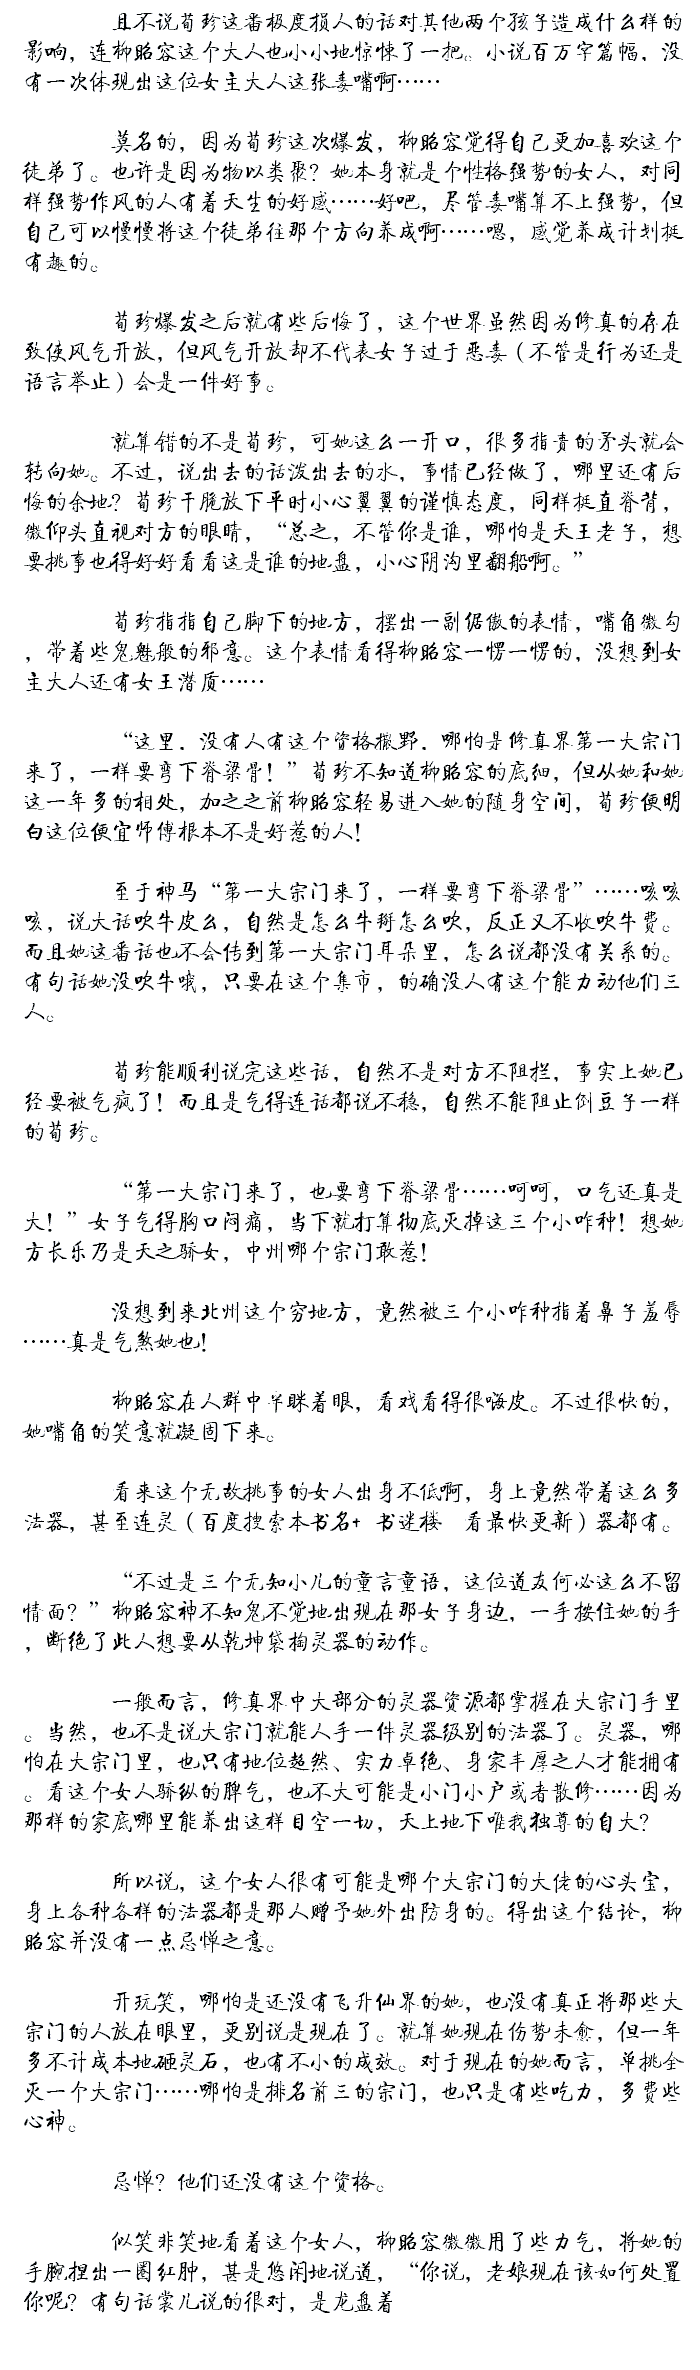 且不说荀珍这番极度损人的话对其他两个孩子造成什么样的
影响，连柳昭容这个大人也小小地惊悚了一把。小说百万字篇幅，没
有一次体现出这位女主大人这张毒嘴啊……
莫名的，因为荀珍这次爆发，柳昭容觉得自己更加喜欢这个
徒弟了。也许是因为物以类聚？她本身就是个性格强势的女人，对同
样强势作风的人有着天生的好感……好吧，尽管毒嘴算不上强势，但
自己可以慢慢将这个徒弟往那个方向养成啊……嗯，感觉养成计划挺
有趣的。
荀珍爆发之后就有些后悔了，这个世界虽然因为修真的存在
致使风气开放，但风气开放却不代表女子过于恶毒（不管是行为还是
语言举止）会是一件好事。
就算错的不是荀珍，可她这么一开口，很多指责的矛头就会
转向她。不过，说出去的话泼出去的水，事情已经做了，哪里还有后
悔的余地？荀珍干脆放下平时小心翼翼的谨慎态度，同样挺直脊背，
微仰头直视对方的眼睛，“总之，不管你是谁，哪怕是天王老子，想
要挑事也得好好看看这是谁的地盘，小心阴沟里翻船啊。”
荀珍指指自己脚下的地方，摆出一副倨傲的表情，嘴角微勾
，带着些鬼魅般的邪意。这个表情看得柳昭容一愣一愣的，没想到女
主大人还有女王潜质……
“这里，没有人有这个资格撒野，哪怕是修真界第一大宗门
来了，一样要弯下脊梁骨！”荀珍不知道柳昭容的底细，但从她和她
这一年多的相处，加之之前柳昭容轻易进入她的随身空间，荀珍便明
白这位便宜师傅根本不是好惹的人！
至于神马“第一大宗门来了，一样要弯下脊梁骨”……咳咳
咳，说大话吹牛皮么，自然是怎么牛掰怎么吹，反正又不收吹牛费。
而且她这番话也不会传到第一大宗门耳朵里，怎么说都没有关系的。
有句话她没吹牛哦，只要在这个集市，的确没人有这个能力动他们三
人。
荀珍能顺利说完这些话，自然不是对方不阻拦，事实上她已
经要被气疯了！而且是气得连话都说不稳，自然不能阻止倒豆子一样
的荀珍。
“第一大宗门来了，也要弯下脊梁骨……呵呵，口气还真是
大！”女子气得胸口闷痛，当下就打算彻底灭掉这三个小咋种！想她
方长乐乃是天之骄女，中州哪个宗门敢惹！
没想到来北州这个穷地方，竟然被三个小咋种指着鼻子羞辱
……真是气煞她也！
柳昭容在人群中半眯着眼，看戏看得很嗨皮。不过很快的，
她嘴角的笑意就凝固下来。
看来这个无故挑事的女人出身不低啊，身上竟然带着这么多
法器，甚至连灵（百度搜索本书名+ 书迷楼 看最快更新）器都有。
“不过是三个无知小儿的童言童语，这位道友何必这么不留
情面？”柳昭容神不知鬼不觉地出现在那女子身边，一手按住她的手
，断绝了此人想要从乾坤袋掏灵器的动作。
一般而言，修真界中大部分的灵器资源都掌握在大宗门手里
。当然，也不是说大宗门就能人手一件灵器级别的法器了。灵器，哪
怕在大宗门里，也只有地位超然、实力卓绝、身家丰厚之人才能拥有
。看这个女人骄纵的脾气，也不大可能是小门小户或者散修……因为
那样的家底哪里能养出这样目空一切，天上地下唯我独尊的自大？
所以说，这个女人很有可能是哪个大宗门的大佬的心头宝，
身上各种各样的法器都是那人赠予她外出防身的。得出这个结论，柳
昭容并没有一点忌惮之意。
开玩笑，哪怕是还没有飞升仙界的她，也没有真正将那些大
宗门的人放在眼里，更别说是现在了。就算她现在伤势未愈，但一年
多不计成本地砸灵石，也有不小的成效。对于现在的她而言，单挑全
灭一个大宗门……哪怕是排名前三的宗门，也只是有些吃力，多费些
心神。
忌惮？他们还没有这个资格。
似笑非笑地看着这个女人，柳昭容微微用了些力气，将她的
手腕捏出一圈红肿，甚是悠闲地说道，“你说，老娘现在该如何处置
你呢？有句话裳儿说的很对，是龙盘着